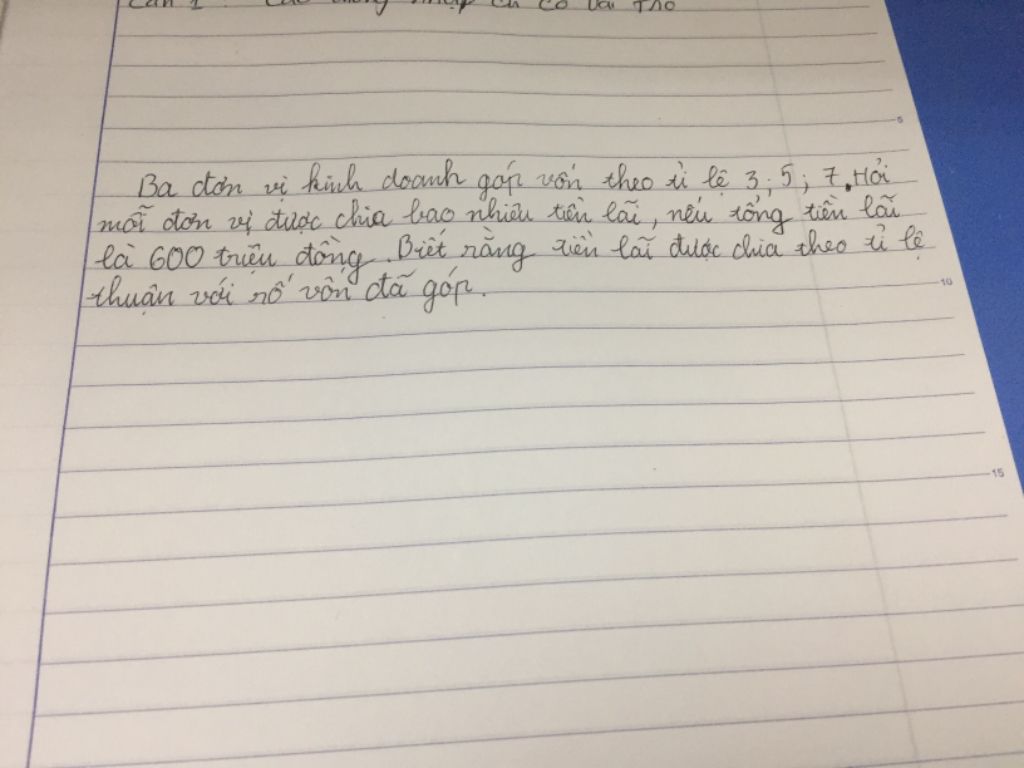 Ba đơn vị kinh doanh góp vốn theo tỉ lệ 3; 5; 7. Hỏi
mỗi đơn vị được chia bao nhiêu tiền lãi, nếu tổng tiền lãi
là 600 triệu đồng. Biết rằng tiền lãi được chia theo tỉ lệ
thuận với số vốn đã góp.
5
10
15